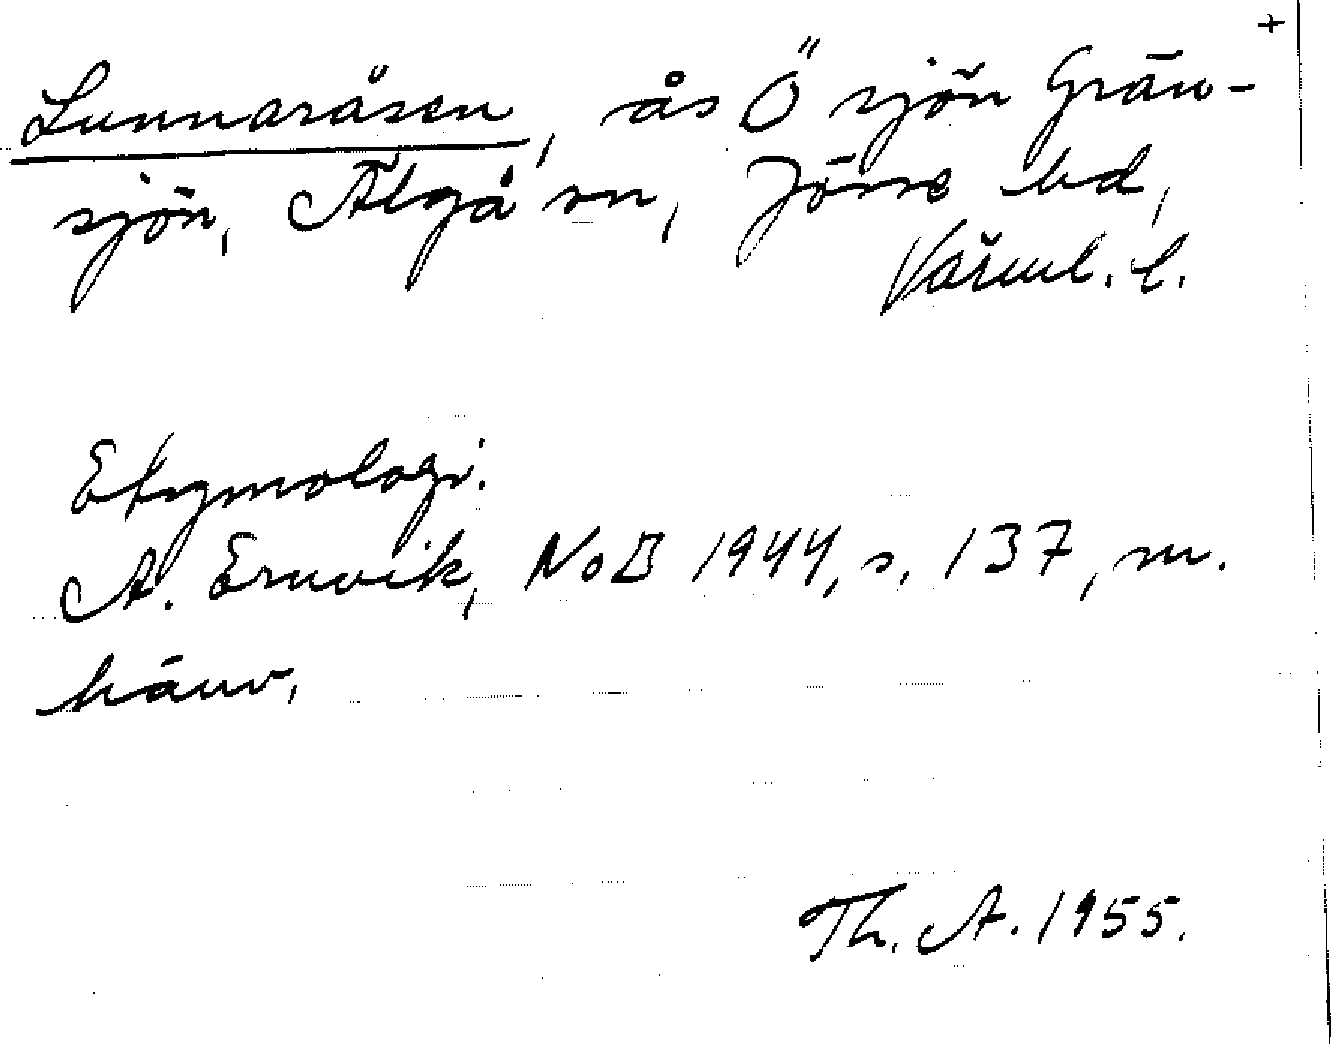 +
Lunnaråsen, ås Ö sjön Grän-
sjön, Älgå sn, Jösse hd,
Värml. l.
Etymologi.
A. Ernvik, NoB 1944, s. 137, m.
hänv.
Th. A. 1955.